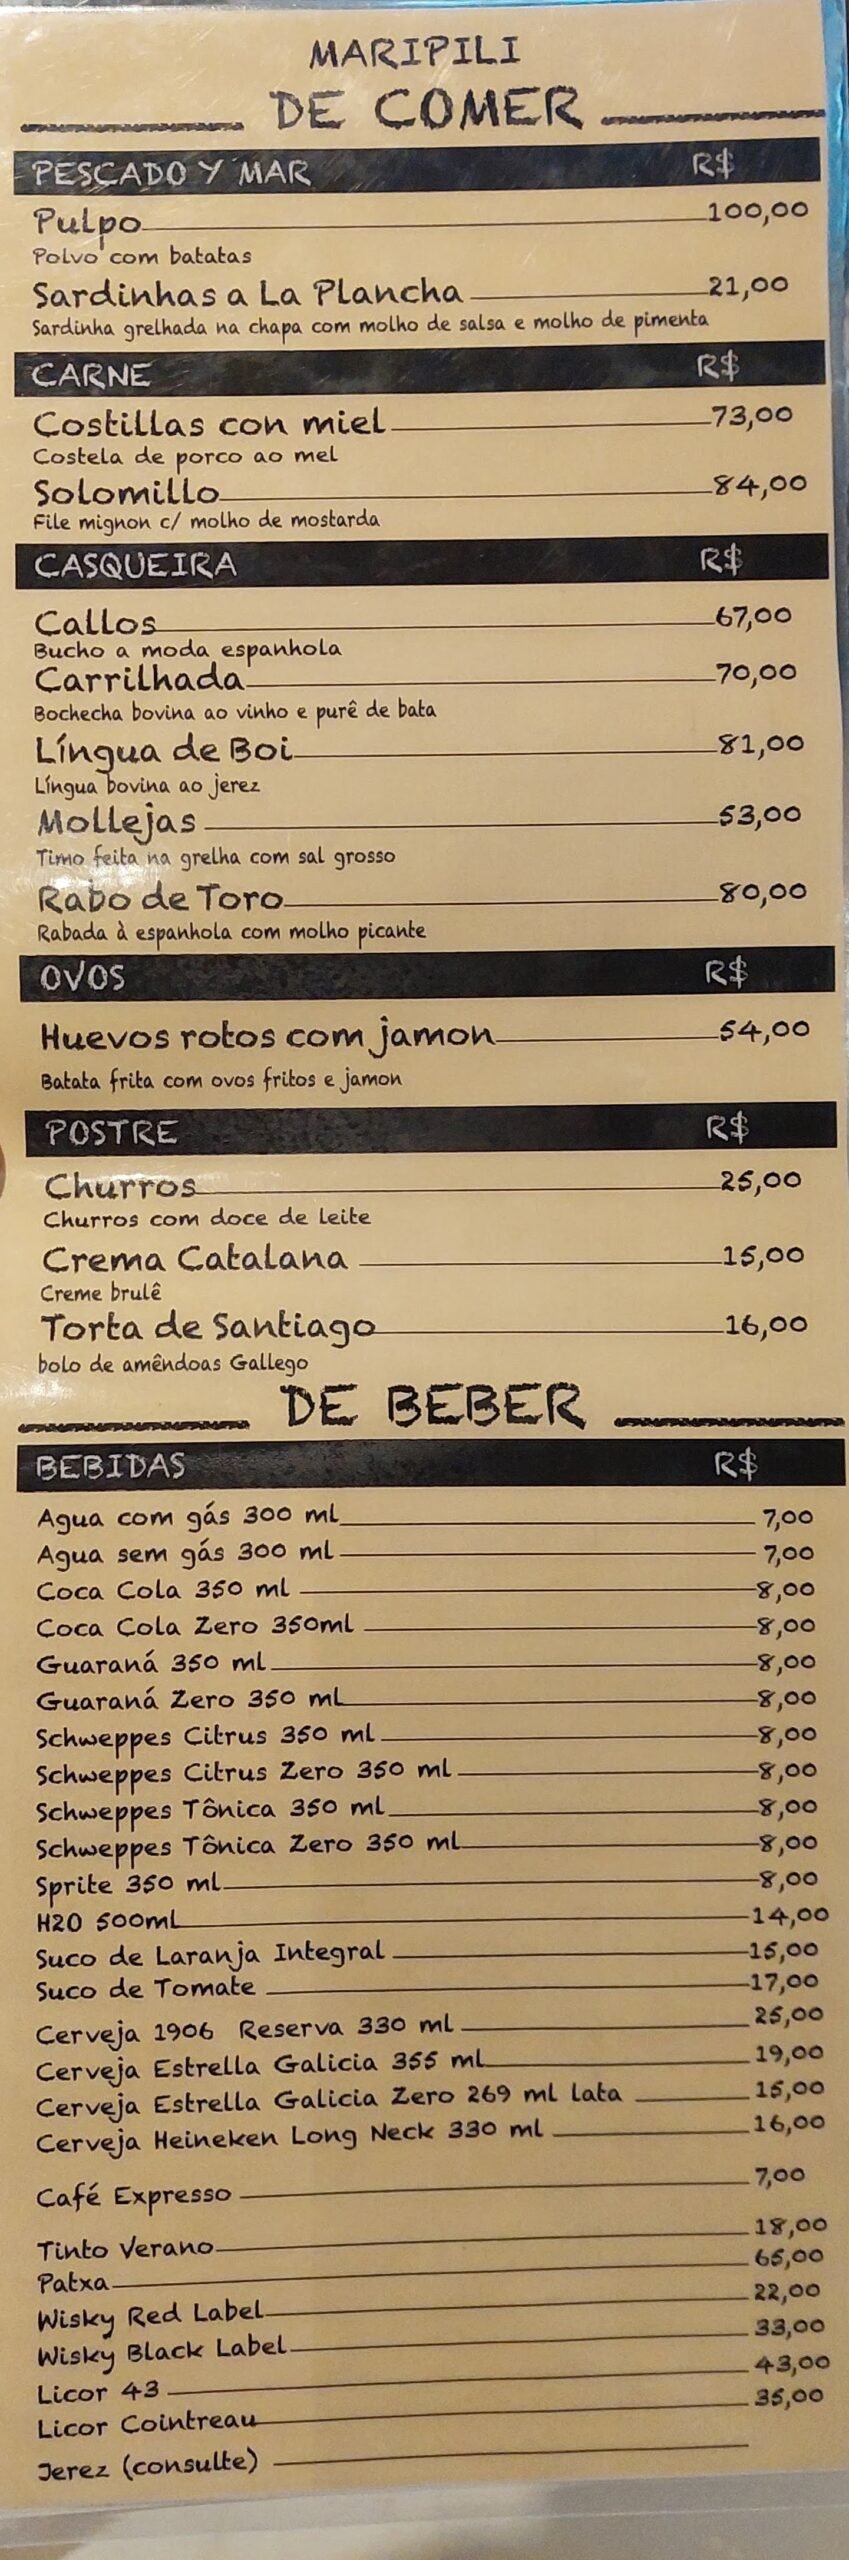 MARIPILI
DE COMER
PESCADO Y MAR R$
Pulpo 100,00
Polvo com batatas
Sardinhas a La Plancha 21,00
Sardinha grelhada na chapa com molho de salsa e molho de pimenta
CARNE R$
Costillas con miel 73,00
Costela de porco ao mel
Solomillo 84,00
File mignon c/ molho de mostarda
CASQUEIRA R$
Callos 67,00
Bucho a moda espanhola
Carrilhada 70,00
Bochecha bovina ao vinho e purê de bata
Língua de Boi 81,00
Língua bovina ao jerez
Mollejas 53,00
Timo feita na grelha com sal grosso
Rabo de Toro 80,00
Rabada à espanhola com molho picante
OVOS R$
Huevos rotos com jamon 54,00
Batata frita com ovos fritos e jamon
POSTRE R$
Churros 25,00
Churros com doce de leite
Crema Catalana 15,00
Creme brulê
Torta de Santiago 16,00
bolo de amêndoas Gallego
DE BEBER
BEBIDAS R$
Agua com gás 300 ml 7,00
Agua sem gás 300 ml 7,00
Coca Cola 350 ml 8,00
Coca Cola Zero 350ml 8,00
Guaraná 350 ml 8,00
Guaraná Zero 350 ml 8,00
Schweppes Citrus 350 ml 8,00
Schweppes Citrus Zero 350 ml 8,00
Schweppes Tônica 350 ml 8,00
Schweppes Tônica Zero 350 ml 8,00
Sprite 350 ml 8,00
H2O 500ml 14,00
Suco de Laranja Integral 15,00
Suco de Tomate 17,00
Cerveja 1906 Reserva 330 ml 25,00
Cerveja Estrella Galicia 355 ml 19,00
Cerveja Estrella Galicia Zero 269 ml lata 15,00
Cerveja Heineken Long Neck 330 ml 16,00
Café Expresso 7,00
Tinto Verano 18,00
Patxa 65,00
Wisky Red Label 22,00
Wisky Black Label 33,00
Licor 43 43,00
Licor Cointreau 35,00
Jerez (consulte)